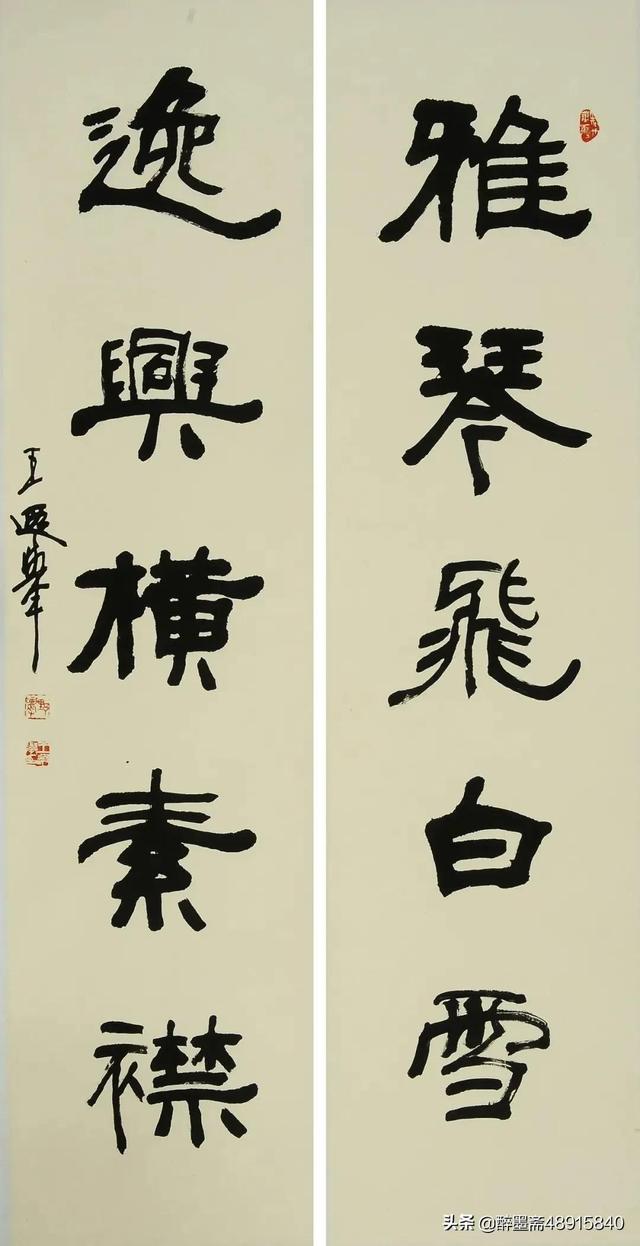 雅琴飛白雪
逸興橫素襟
王遐舉
头条 @醉墨斋48915840